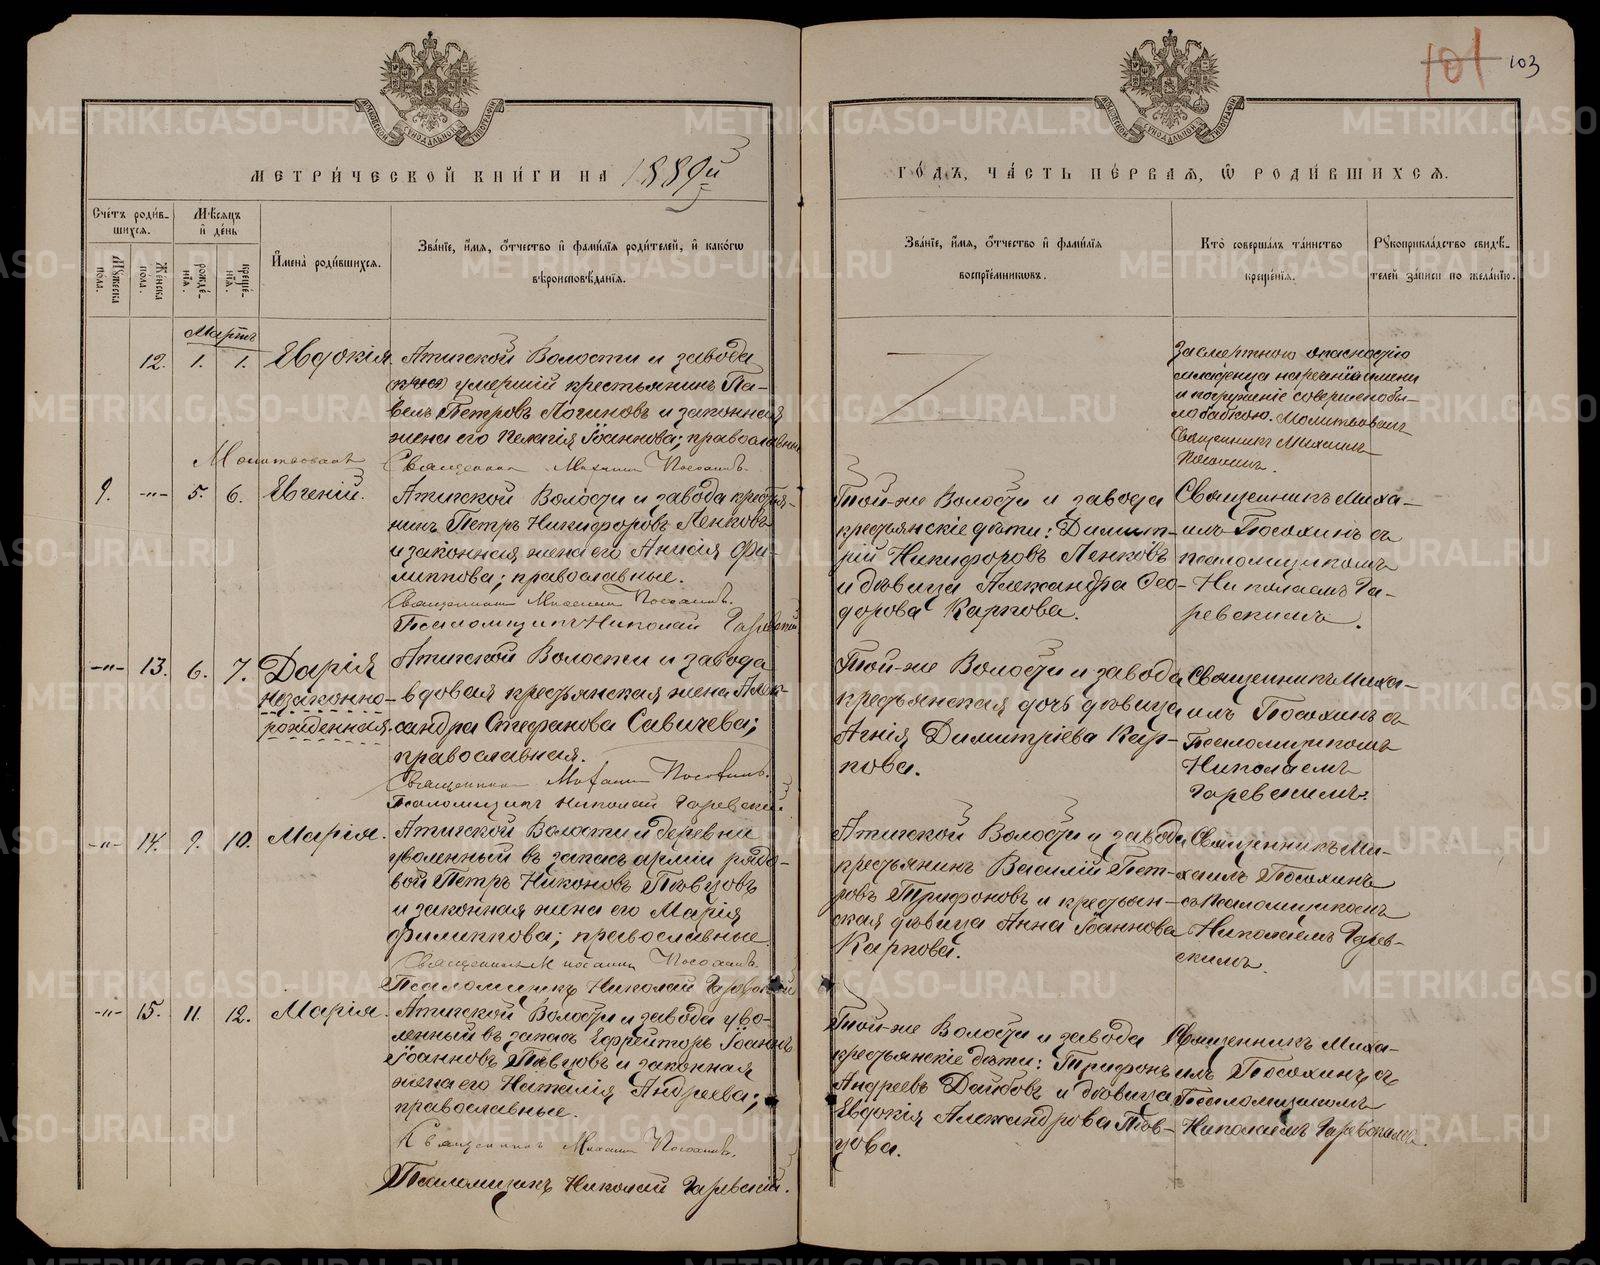 101 103
МЕТРИ́ЧЕСКОЙ КНИ́ГИ НА 1889й
ГО́ДЪ, ЧА́СТЬ ПЕ́РВАЯ, Ѿ РОДИ́ВШИХСЯ.
Сче́тъ роди́в-
шихся.
Му́жеска пола.
Же́нска пола.
Мѣ́сяцъ
и҆ де́нь
рожде́-
нїя.
креще́-
нїя.
И҆мена̀ роди́вшихся.
Зва́нїе, и҆́мя, ѻ҆́тчество и҆ фами́лїя роди́телей, и҆ како́гѡ
вѣроисповѣ́данїя.
Зва́нїе, и҆́мя, ѻ҆́тчество и҆ фами́лїя
воспрїе́мникѡвъ.
Кто̀ соверша́лъ та́инство
креще́нїя.
Рꙋкоприкла́дство свидѣ́-
телей за́писи по жела́нїю.
Мартъ
12. 1. 1. Евдокія.
Атигской Волости и завода
умершій крестьянинъ Па-
велъ Петровъ Логиновъ и законная
жена его Пелагія Іоаннова; православныя
Священникъ Михаилъ Посохинъ.
За смертною опасностію
младенца нареченіе имени
и погруженіе совершено бы-
ло бабкою. Молитвовалъ
Священникъ Михаилъ
Посохинъ.
Молитвовалъ
9. -"- 5. 6. Евгеній.
Атигской Волости и завода кресть-
нинъ Петръ Никифоровъ Ленковъ
и законная жена его Анисія Фи-
липпова; православные.
Священникъ Михаилъ Посохинъ.
Псаломщикъ Николай Гаревскій
Той-же Волости и завода
крестьянскіе дѣти: Димит-
рій Никифоровъ Ленковъ
и дѣвица Александра Ѳео-
дорова Карпова.
Священникъ Миха-
илъ Посохинъ съ
псаломщикомъ
Николаемъ Га-
ревскимъ.
-"- 13. 6. 7. Дарія
незаконно-
рожденная.
Атигской Волости и завода
вдовая крестьянская жена Алек-
сандра Стефанова Савичева;
православная.
Священникъ Михаилъ Посохинъ.
Псаломщикъ Николай Гаревскій
Той-же Волости и завода
крестьянская дочь дѣвица
Агнія Димитріева Кар-
пова.
Священникъ Миха-
илъ Посохинъ съ
Псаломщикомъ
Николаемъ
Гаревскимъ.
-"- 14. 9. 10. Марія.
Атигской Волости и деревни
уволенный въ запасъ арміи рядо-
вой Петръ Никоновъ Пѣвцовъ
и законная жена его Марія
Филиппова; православные.
Священникъ Михаилъ Посохинъ.
Псаломщикъ Николай Гаревскій
Атигской Волости и завода
крестьянинъ Василій Пет-
ровъ Трифоновъ и крестьян-
ская дѣвица Анна Іоаннова
Карпова.
Священникъ Ми-
хаилъ Посохинъ
съ Псаломщикомъ
Николаемъ Гарев-
скимъ.
-"- 15. 11. 12. Марія.
Атигской Волости и завода уво-
ленный въ запасъ Ефрейторъ Іоаннъ
Іоанновъ Пѣвцовъ и законная
жена его Наталія Андреева;
православные.
Священникъ Михаилъ Посохинъ.
Псаломщикъ Николай Гаревскій.
Той-же Волости и завода
крестьянскіе дѣти: Трифонъ
Андреевъ и дѣвица
Евдокія Александрова Пѣв-
цова.
Священникъ Миха-
илъ Посохинъ съ
Псаломщикомъ
Николаемъ Гаревскимъ.
METRIKI.GASO-URAL.RU